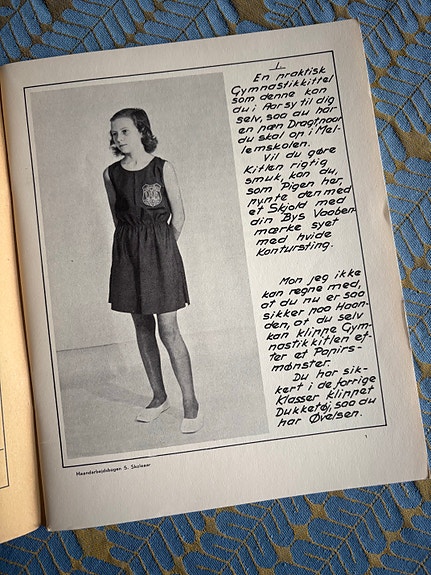 1.
En praktisk
Gymnastikkittel
som denne kan
du i Aar sy til dig
selv, saa du har
en pæn Dragt, naar
du skal op i Mel-
lemskolen.
Vil du gøre
Kitlen rigtig
smuk, kan du,
som Pigen her,
pynte den med
et Skjold med
din Bys Vaaben-
mærke syet
med hvide
Kontursting.
Mon jeg ikke
kan regne med,
at du nu er saa
sikker paa Haan-
den, at du selv
kan klippe Gym-
nastikkitlen ef-
ter et Papirs-
mønster.
Du har sik-
kert i de forrige
Klasser klippet
Dukketøj, saa du
har Øvelsen.
Haandarbejdsbogen 5. Skoleaar
1